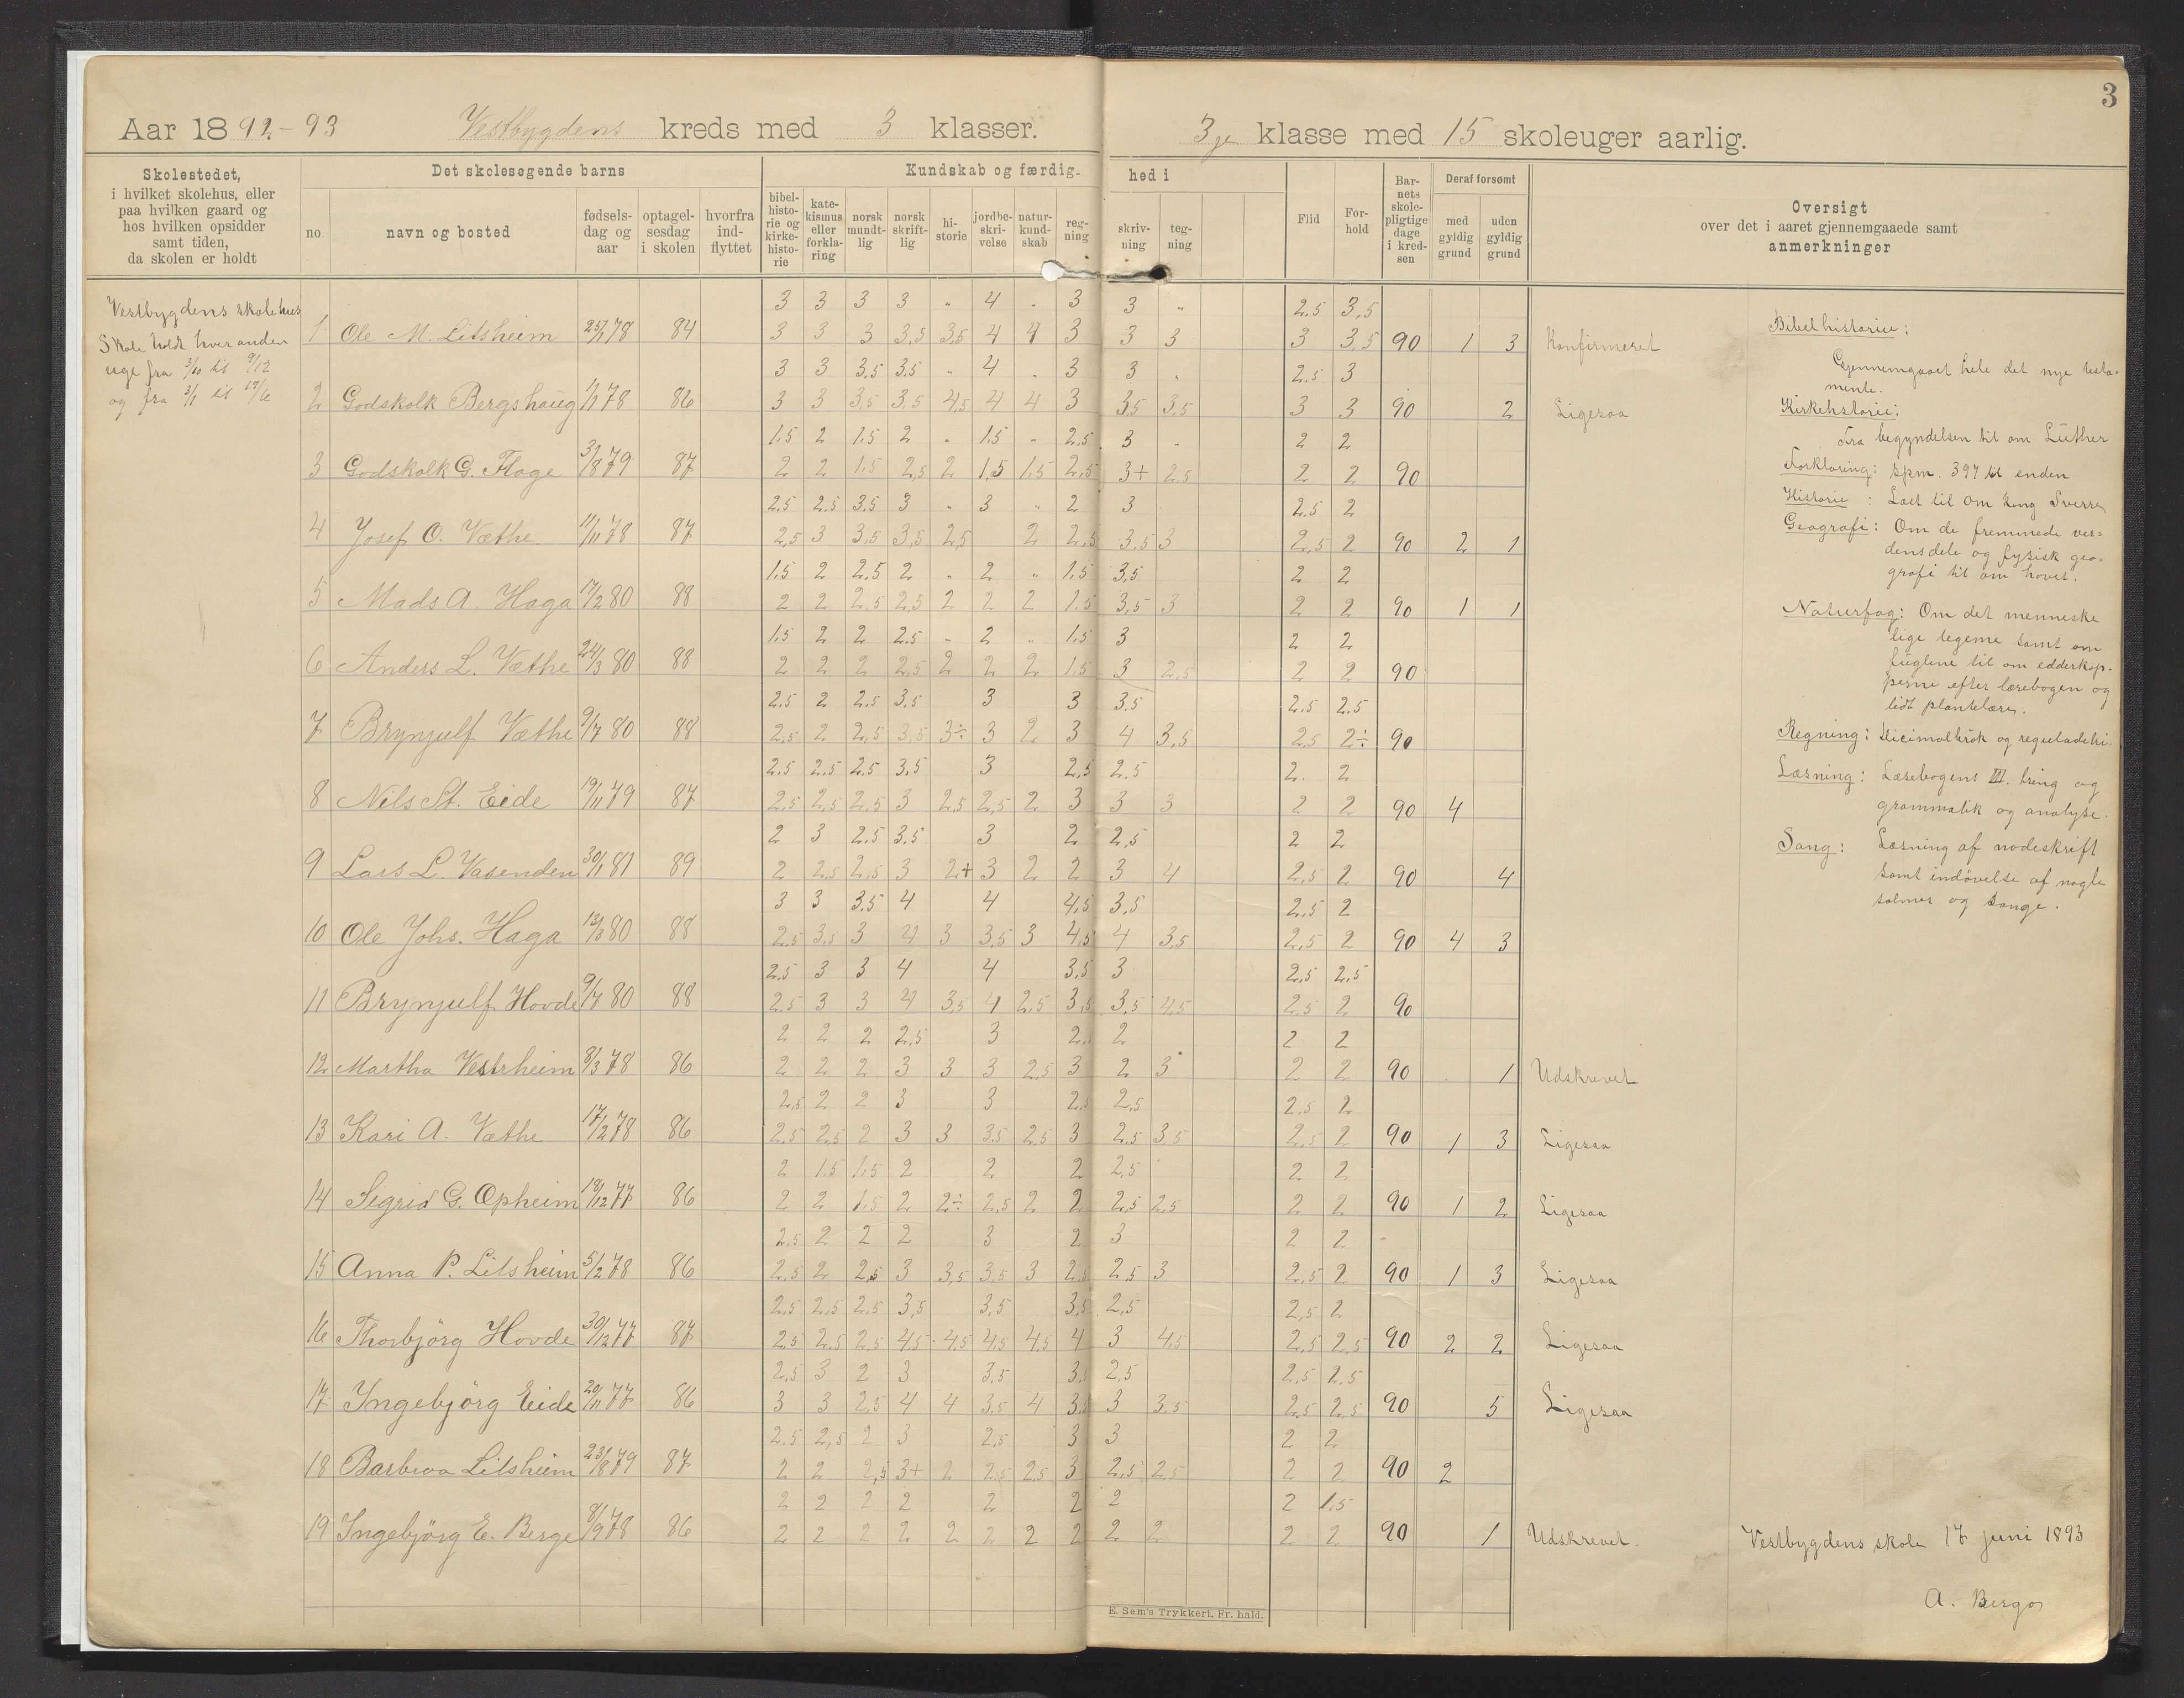 3
Aar 1892-93 Vestbygdens kreds med 3 klasser. 3je klasse med 15 skoleuger aarlig.
Skolestedet,
i hvilket skolehus, eller
paa hvilken gaard og
hos hvilken opsidder
samt tiden,
da skolen er holdt
Det skolesøgende barns
no. navn og bosted fødsels-dag og aar optagel-sesdag i skolen hvorfra ind-flyttet
Kundskab og færdig-hed i
bibel-histo-rie og kirke-histo-rie kate-kismus eller forkla-ring norsk mundt-lig norsk skrift-lig hi-storie jordbe-skri-velse natur-kund-skab reg-ning skriv-ning teg-ning
Flid For-hold Bar-nets skole-pligtige dage i kred-sen
Deraf forsømt
med gyldig grund uden gyldig grund
Oversigt
over det i aaret gjennemgaaede samt
anmerkninger
Vestbygdens skolehus
Skole holdt hveranden
uge fra 3/10 til 9/12
og fra 3/1 til 17/6
3 3 3 3 " 4 " 3 3 " 2.5 3,5
1 Ole M. Litsheim 25/1 78 84 3 3 3 3,5 3,5 4 4 3 3 3 3 3,5 90 1 3 Konfirmeret
3 3 3.5 3.5 " 4 " 3 3 " 2.5 3
2 Godskalk Bergshaug 1/1 78 86 3 3 3,5 3,5 4,5 4 4 3 3,5 3,5 3 3 90 2 Ligesaa
1.5 2 1.5 2 " 1.5 " 2.5 3 " 2 2
3 Godskalk G. Flage 3/8 79 87 2 2 1,5 2,5 2 1,5 1,5 2,5 3+ 2.5 2 2 90
2.5 2.5 3.5 3 " 3 " 2 3 2.5 2
4 Josef O. Væthe 11/11 78 87 2,5 3 3,5 3,5 2,5 2 2,5 3.5 3 2,5 2 90 2 1
1.5 2 2.5 2 " 2 " 1.5 3,5 2 2
5 Mads A. Haga 17/2 80 88 2 2 2,5 2,5 2 2 2 1.5 3,5 3 2 2 90 1 1
1.5 2 2 2.5 " 2 " 1.5 3 2 2
6 Anders L. Væthe 24/3 80 88 2 2 2 2,5 2 2 2 1,5 3 2,5 2 2 90
2.5 2 2.5 3.5 3 3 3.5 2.5 2.5
7 Brynjulf Væthe 9/7 80 88 2.5 2 2,5 3,5 3÷ 3 2 3 4 3,5 2,5 2÷ 90
2.5 2.5 2.5 3.5 3 2,5 2.5 2. 2
8 Nils St. Eide 19/11 79 87 2,5 2,5 2,5 3 2,5 2,5 2 3 3 3 2 2 90 4
2 3 2.5 3.5 3 2 2,5 2 2
9 Lars L. Vasenden 30/1 81 89 2 2,5 2,5 3 2+ 3 2 2 3 4 2,5 2 90 4
3 3 3.5 4 4 4,5 3.5 2.5 2
10 Ole Johs. Haga 80 88 2,5 3,5 3 4 3 3,5 3 4,5 4 3,5 2,5 2 90 4 3
2.5 3 3 4 4 3,5 3 2,5 2,5
11 Brynjulf Hovde 9/7 80 88 2.5 3 3 4 3,5 4 2,5 3,5 3,5 4,5 2,5 2 90
2 2 2 2,5 3 2. 2 2 2
12 Martha Vestrheim 8/3 78 86 2 2 2 3 3 3 2.5 3 2 3 2 2 90 1 Udskrevet
2,5 2 2 3 3 2,5 2,5 2.5 2
13 Kari A. Væthe 17/2 78 86 2.5 2,5 2 3 3 3.5 2.5 3 2.5 3.5 2,5 2 90 1 3 Ligesaa
2 1.5 1.5 2 2 2 2.5 2 2
14 Sigrid G. Opheim 18/12 77 86 2 2 1,5 2 2÷ 2,5 2 2 2,5 2,5 2 2 90 1 2 Ligesaa
2.5 2 2 2 3 2 3 2 2
15 Anna P. Litsheim 5/2 78 86 2,5 2 2,5 3 3,5 3,5 3 2,5 2,5 3 2,5 2 90 1 3 Ligesaa
2.5 2.5 2.5 3,5 3,5 3,5 2,5 2,5 2
16 Thorbjörg Hovde 30/12 77 87 2.5 2.5 2,5 4,5 4,5 4,5 4,5 4 3 4,5 2,5 2,5 90 2 2 Ligesaa
2.5 3 2 3 3.5 3,5 2,5 2,5 2.5
17 Ingebjörg Eide 20/11 77 86 3 3 2,5 4 4 3,5 4 3,5 3 3.5 2,5 2,5 90 5 Ligesaa
2.5 2,5 2 3 2,5 3 3 2 2
18 Barbroa Litsheim 23/8 79 87 2 2 2,5 3+ 2 2.5 2,5 3 2,5 2,5 2 2 90 2
2 2 2 2 2 2 2 2 1,5
19 Ingebjörg E. Berge 8/9 78 86 2 2 2 2 2 2 2 2 2 2 2 2 90 1 Udskrevet.
Bibelhistorie:
Gjennemgaaet hele det nye testa-
mente.
Kirkehistorie:
Fra begyndelsen til om Luther
Forklaring: Spm. 397 til enden
Historie: Læst til om kong Sverre
Geografi: Om de fremmede ver-
densdele og fysisk geo-
grafi til om havet.
Naturfag: Om det menneske
lige legeme samt om
fuglene til om edderkop-
perne efter læsebogen og
lidt plantelære.
Regning: Decimalbrøk og reguladetri.
Læsning: Læsebogens III. tring og
grammatik og analyse.
Sang: Læsning af nodeskrift
samt indøvelse af nogle
salmer og sange.
Vestbygdens skole 17 juni 1893
A. Berge
E. Sem's Trykkeri, Fr. hald.